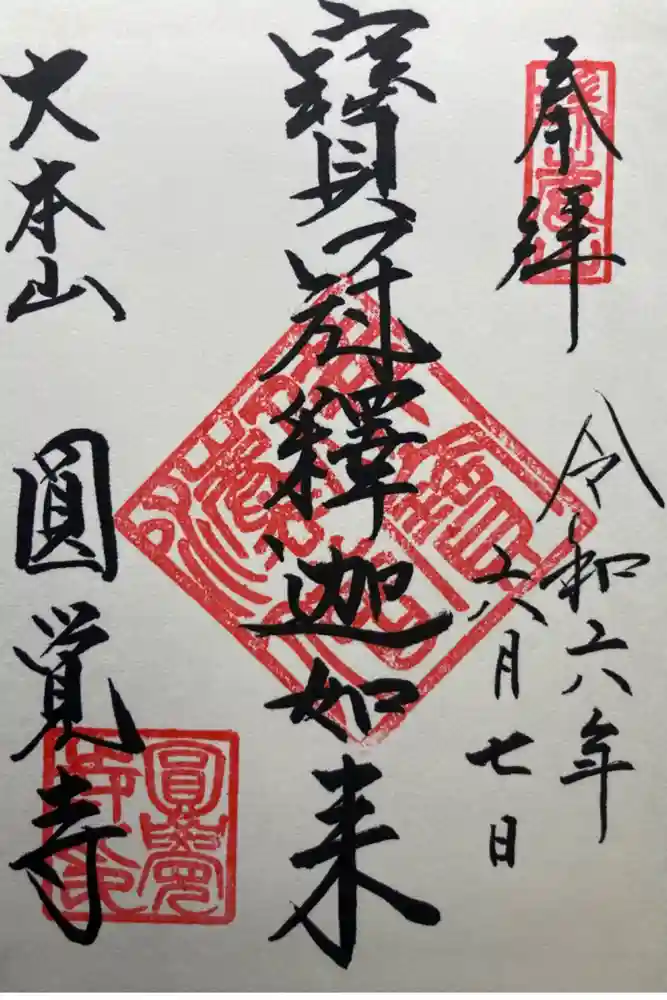 奉拝
令和六年
六月七日
寶冠釋迦如来
大本山
圓覚寺